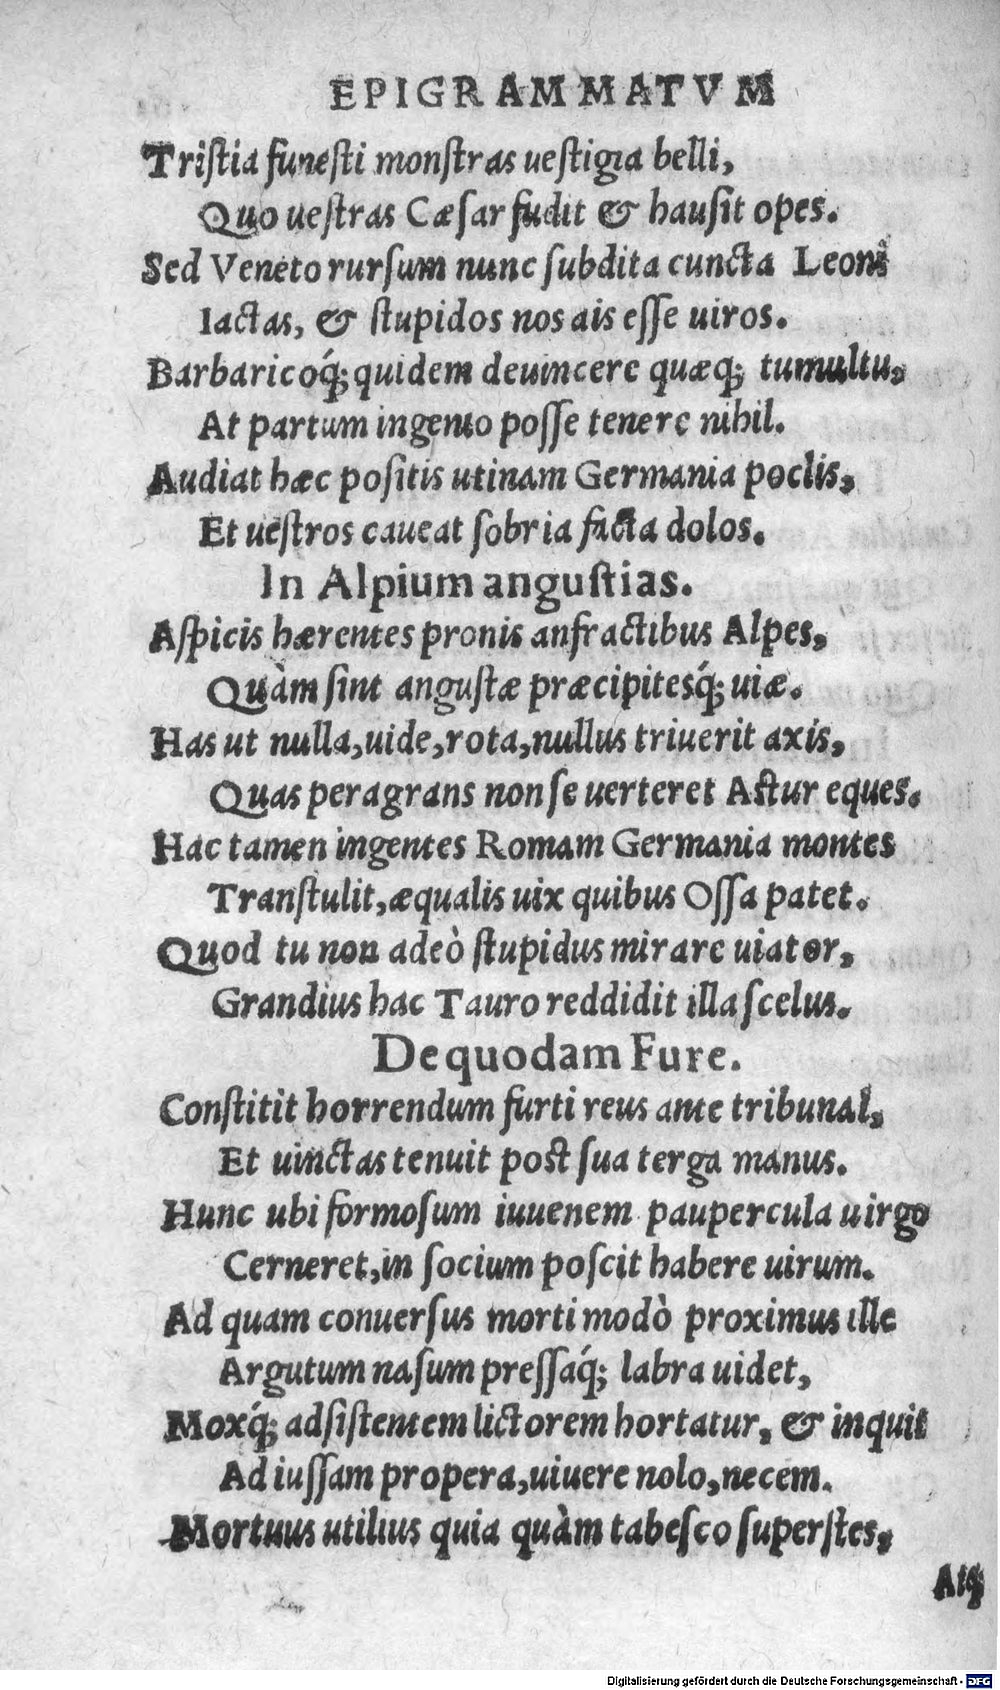 EPIGRAMMATVM
Triſtia funeſti monſtras ueſtigia belli,
Quo ueſtras Cæſar fudit & hauſit opes.
Sed Veneto rurſum nunc ſubdita cuncta Leoni
Iactas, & ſtupidos nos ais eſſe uiros.
Barbaricoq́; quidem deuincere quæq; tumultu,
At partum ingenio poſſe tenere nihil.
Audiat hæc poſitis utinam Germania poclis,
Et ueſtros caueat ſobria facta dolos.
In Alpium anguſtias.
Aſpicis hærentes pronis anfractibus Alpes,
Quàm ſint anguſtæ præcipitesq́; uiæ.
Has ut nulla, uide, rota, nullus triuerit axis,
Quas peragrans non ſe uerteret Aſtur eques.
Hac tamen ingentes Romam Germania montes
Tranſtulit, æqualis uix quibus Oſſa patet.
Quod tu non adeò ſtupidus mirare uiator,
Grandius hac Tauro reddidit illa ſcelus.
De quodam Fure.
Conſtitit horrendum furti reus ante tribunal,
Et uinctas tenuit poſt ſua terga manus.
Hunc ubi formoſum iuuenem paupercula uirgo
Cerneret, in ſocium poſcit habere uirum.
Ad quam conuerſus morti modò proximus ille
Argutum naſum preſſaq́; labra uidet,
Moxq́; adſiſtentem lictorem hortatur, & inquit
Ad iuſſam propera, uiuere nolo, necem.
Mortuus utilius quia quàm tabeſco ſuperſtes,
Atq;
Digitalisierung gefördert durch die Deutsche Forschungsgemeinschaft - DFG